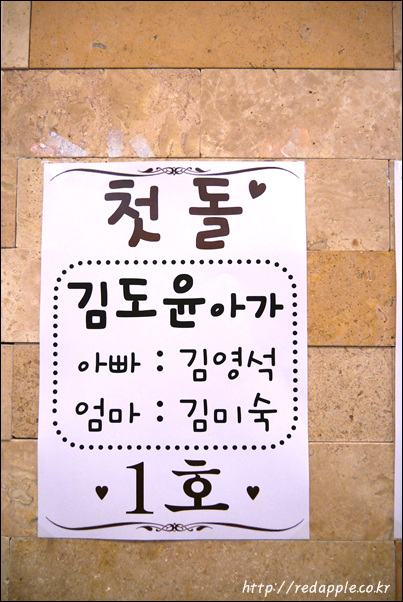 첫돌♥
김도윤아가
아빠 : 김영석
엄마 : 김미숙
♥ 1호 ♥
http://redapple.co.kr